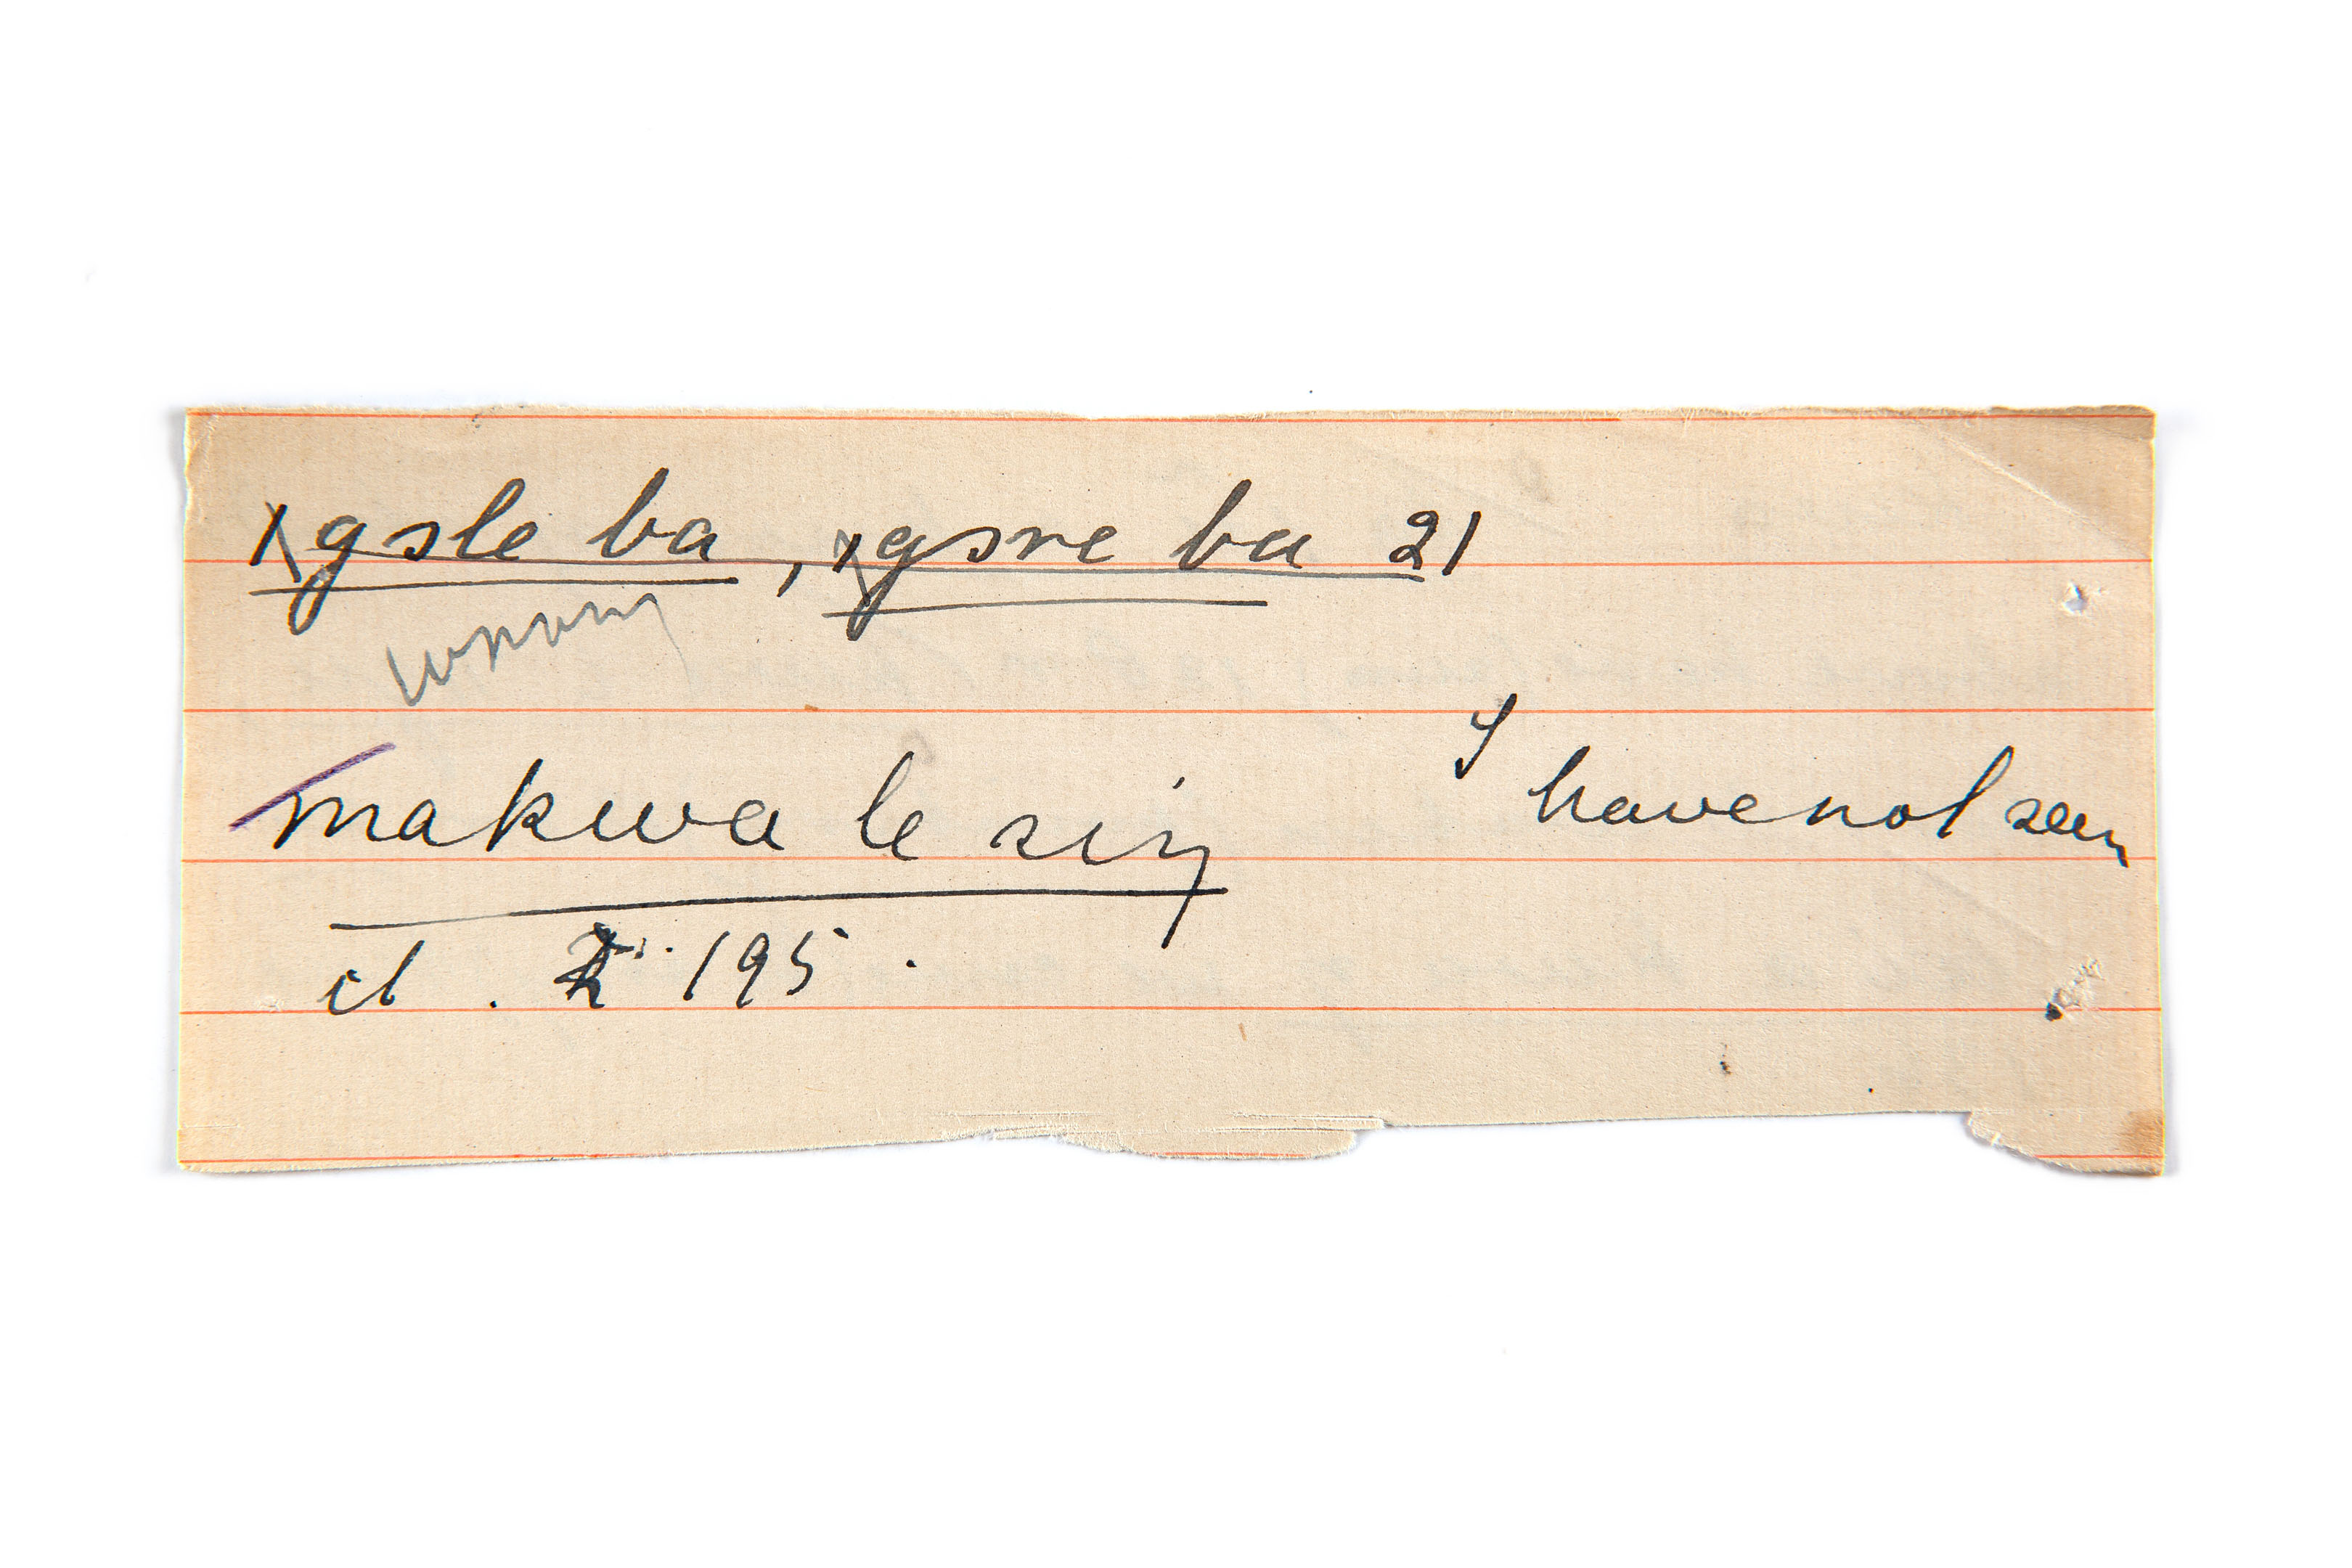 ꭓgsle ba, ꭓgsre ba 21
wrong
makwa le siŋ
I have not seen
it . 195 .